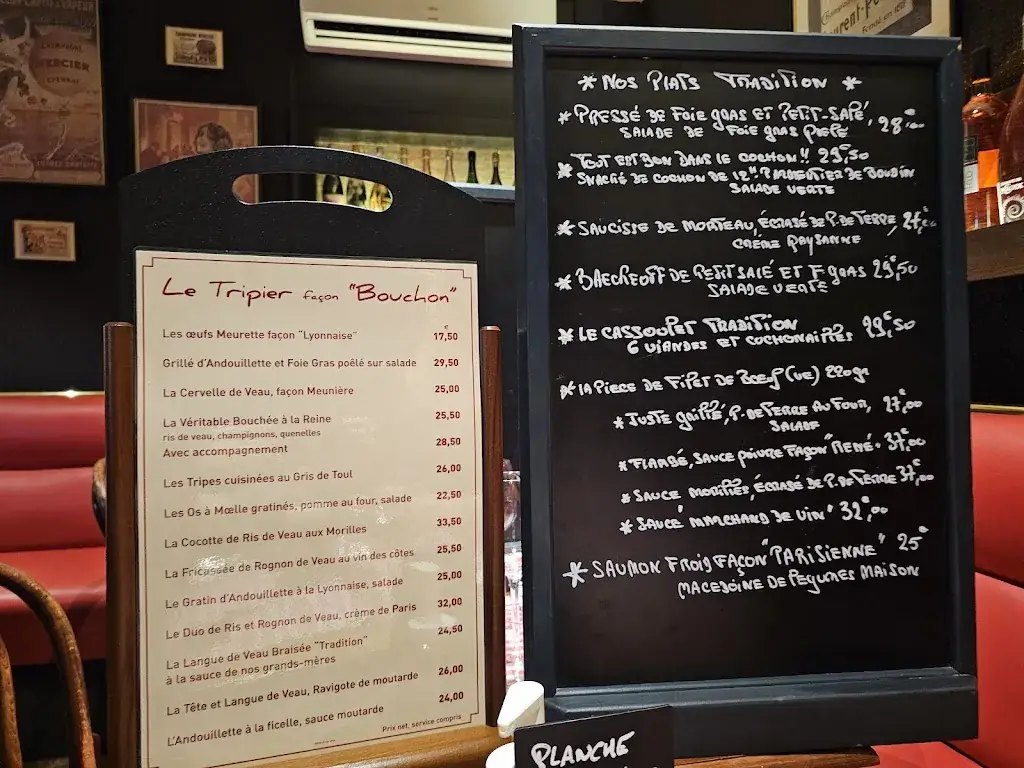 CHAMPAGNE
MERCIER
EPERNAY
Le Tripier façon "Bouchon"
Les œufs Meurette façon "Lyonnaise" 17,50 €
Grillé d'Andouillette et Foie Gras poêlé sur salade 29,50
La Cervelle de Veau, façon Meunière 25,00
La Véritable Bouchée à la Reine 25,50
ris de veau, champignons, quenelles
Avec accompagnement 28,50
Les Tripes cuisinées au Gris de Toul 26,00
Les Os à Mœlle gratinés, pomme au four, salade 22,50
La Cocotte de Ris de Veau aux Morilles 33,50
La Fricassée de Rognon de Veau au vin des côtes 25,50
Le Gratin d'Andouillette à la Lyonnaise, salade 25,00
Le Duo de Ris et Rognon de Veau, crème de Paris 32,00
La Langue de Veau Braisée "Tradition" 24,50
à la sauce de nos grands-mères
La Tête et Langue de Veau, Ravigote de moutarde 26,00
L'Andouillette à la ficelle, sauce moutarde 24,00
Prix net, service compris
* NOS PLATS TRADITION *
* PRESSÉ DE FOIE GRAS ET PETIT-SALÉ, 28,00
SALADE DE FOIE GRAS POÊLÉ
* TOUT EST BON DANS LE COCHON!! 29,50
DE COCHON DE 12H PARMENTIER DE BOUDIN
SALADE VERTE
* SAUCISSE DE MORTEAU, ÉCRASÉ DE P. DE TERRE,
CRÈME PAYSANNE
* BAECKEOFF DE PETIT SALÉ ET F GRAS 29,50 €
SALADE VERTE
* LE CASSOULET TRADITION 29,50 €
6 VIANDES ET COCHONAILLES
* LA PIECE DE FILET DE BŒUF (UE) 220gr
* JUSTE GRILLÉ, P. DE TERRE AU FOUR, 27,00 €
SALADE
* FLAMBÉ, SAUCE POIVRE FAÇON "RENÉ" 37,00 €
* SAUCE MORILLES, ÉCRASÉ DE P. DE TERRE 37,00
* SAUCE MARCHAND DE VIN" 32,00
* SAUMON FROID FAÇON "PARISIENNE" 25 €
MACEDOINE DE LÉGUMES MAISON
PLANCHE